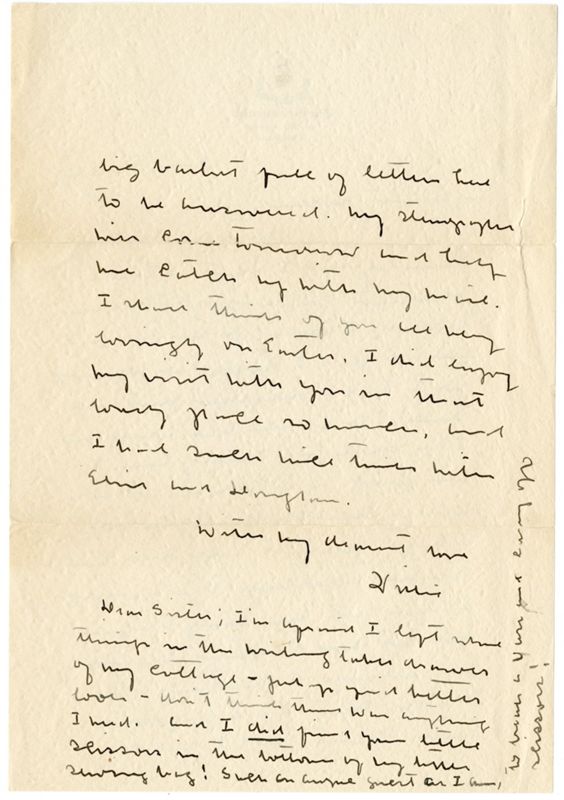 big basket full of letters had
to be answered. My stenographer
will come tomorrow and help
me catch up with my mail.
I shall think of you all very
lovingly on Easter. I did enjoy
my visit with you in that
lovely place so much, and
I had such nice times with
Elsie and Douglass.
With my dearest love
Willie
Dear Sister; I'm afraid I left some
things in the writing table drawer
of my cottage -
over - don't think there was anything
I need. And I did find your little
scissors in the bottom of my little
sewing bag! Such an awful guest as I am,
to and carry off
scissors!